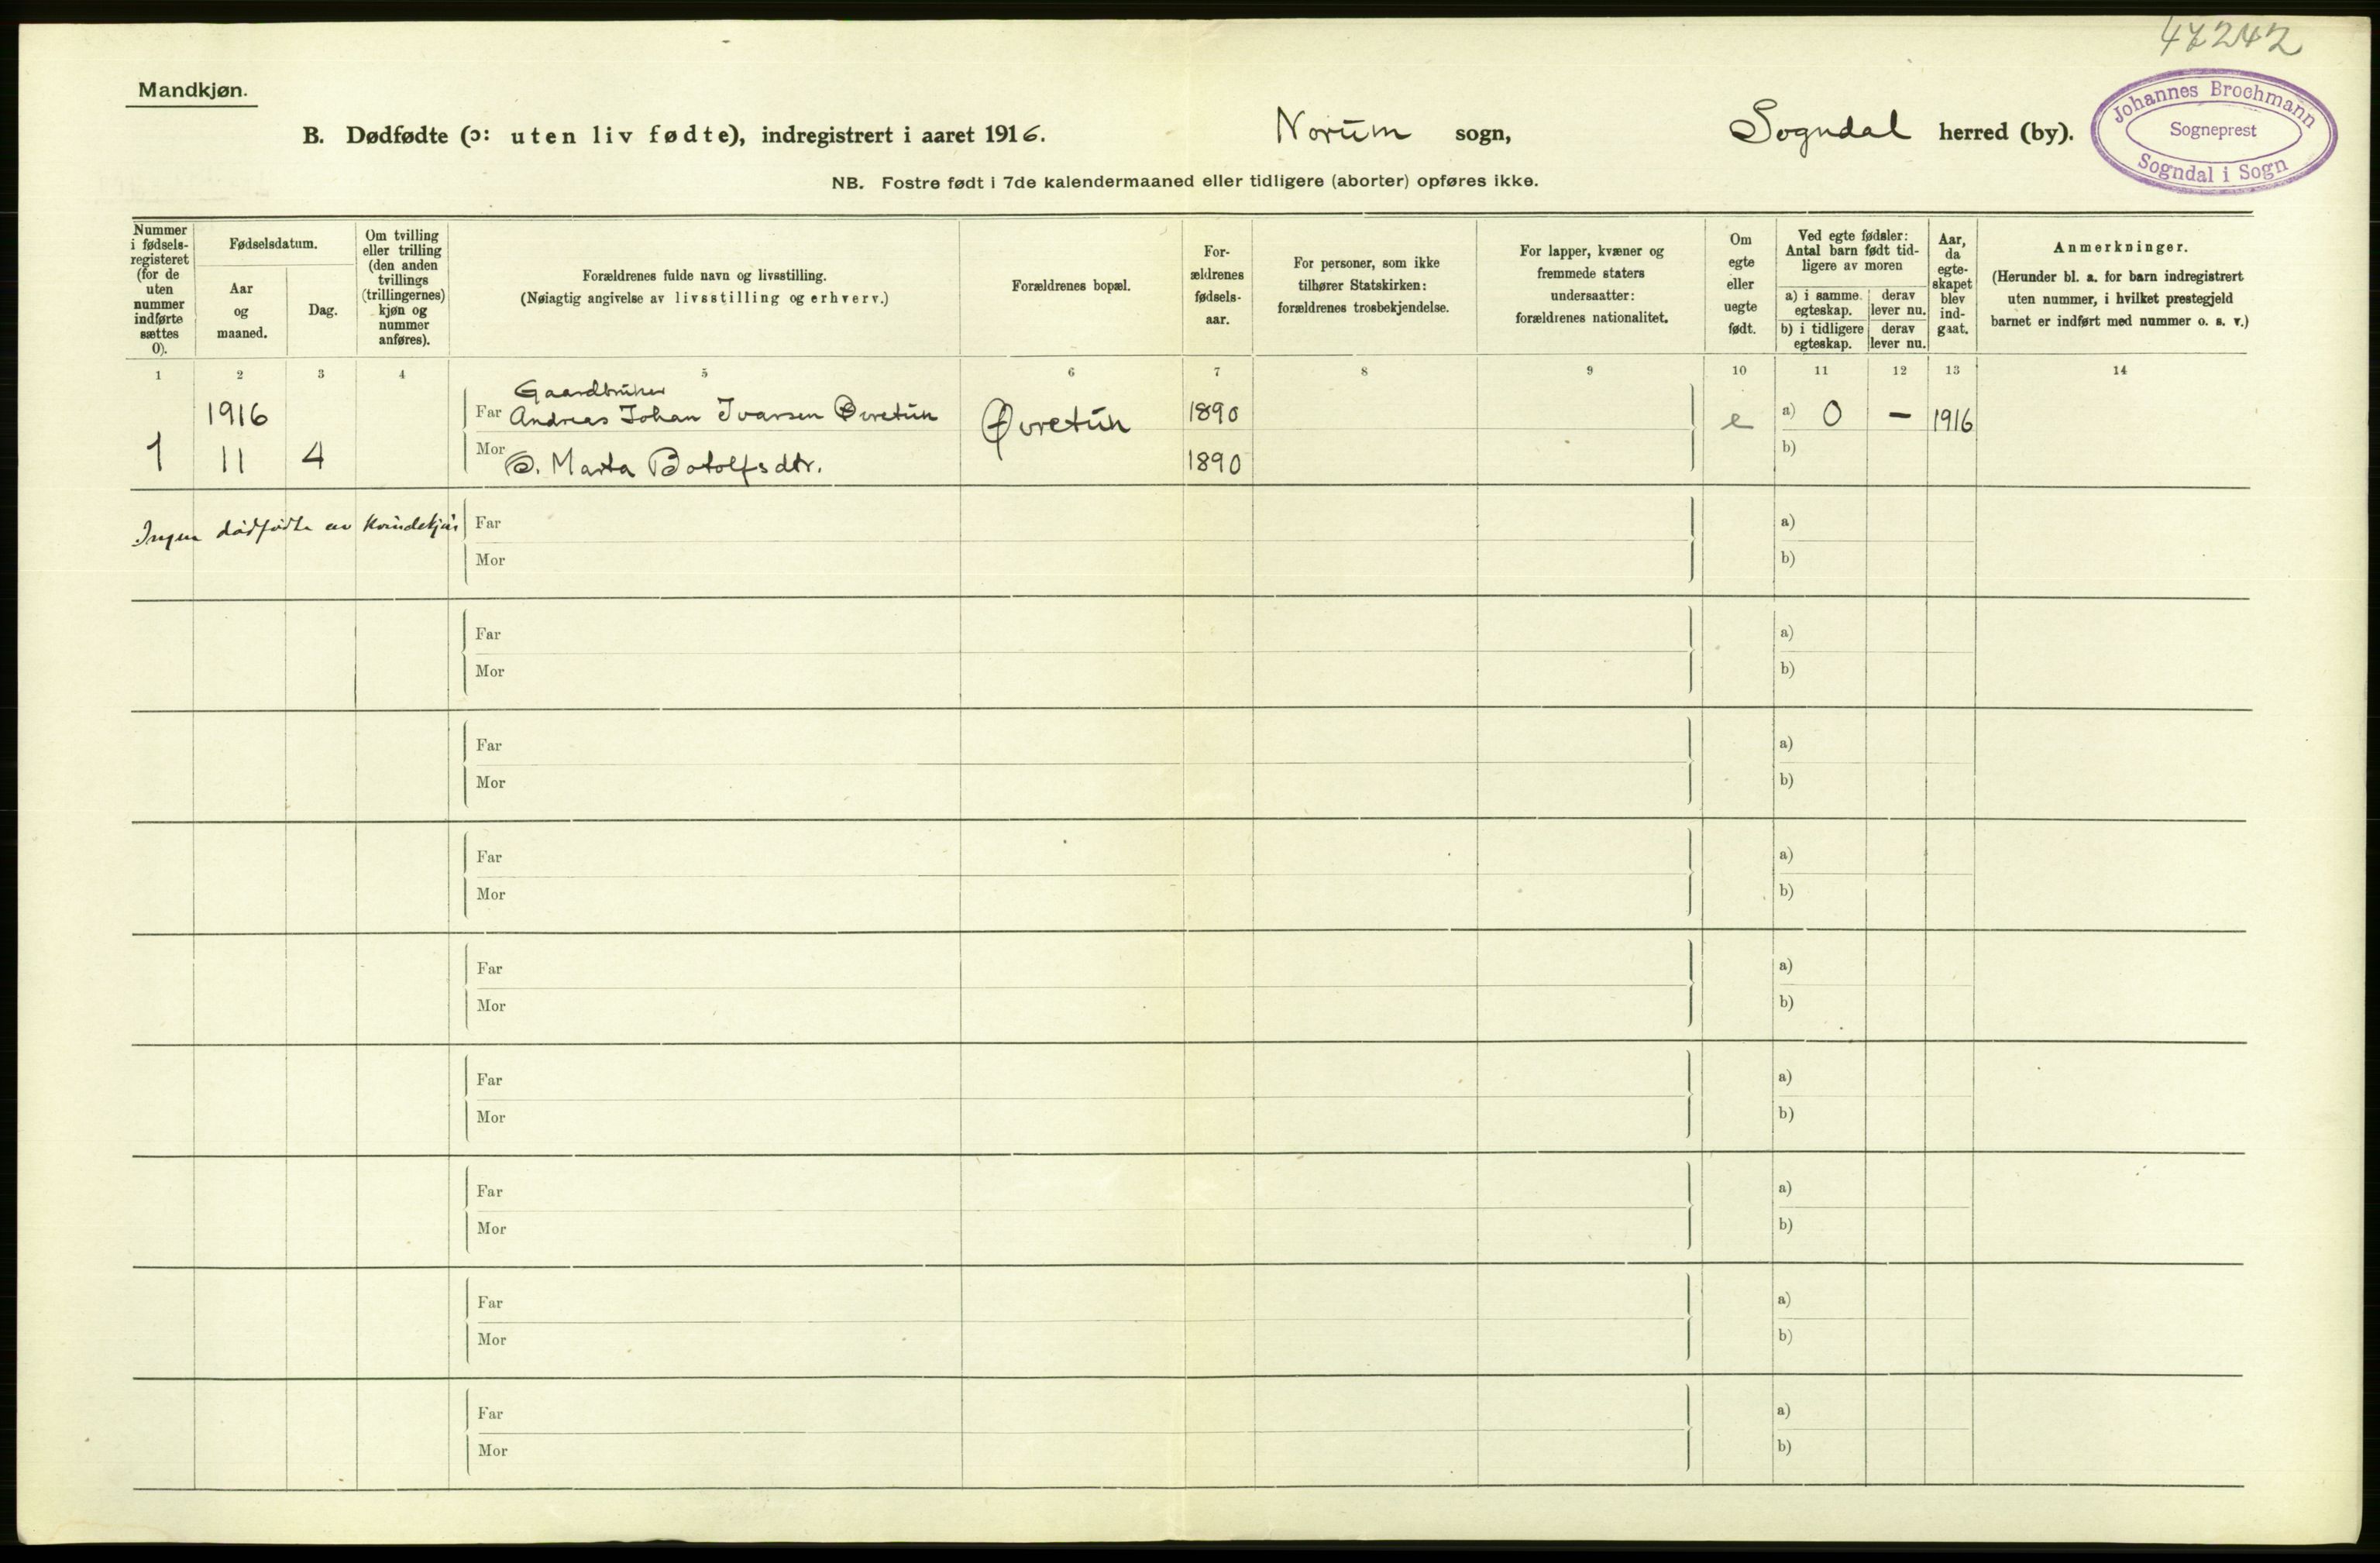 47242
Mandkjøn.
B. Dødfødte (ɔ: uten liv fødte), indregistrert i aaret 1916. Norum sogn, Sogndal herred (by).
Johannes Brochmann
Sogneprest
Sogndal i Sogn
NB. Fostre født i 7de kalendermaaned eller tidligere (aborter) opføres ikke.
Nummer
i fødsels-
registeret
(for de
uten
nummer
indførte
sættes
0).
Fødselsdatum.
Aar
og
maaned.
Dag.
Om tvilling
eller trilling
(den anden
tvillings
(trillingernes)
kjøn og
nummer
anføres).
Forældrenes fulde navn og livsstilling.
(Nøiagtig angivelse av livsstilling og erhverv.)
Forældrenes bopæl.
For-
ældrenes
fødsels-
aar.
For personer, som ikke
tilhører Statskirken:
forældrenes trosbekjendelse.
For lapper, kvæner og
fremmede staters
undersaatter:
forældrenes nationalitet.
Om
egte
eller
uegte
født.
Ved egte fødsler:
Antal barn født tid-
ligere av moren
a) i samme
egteskap.
derav
lever nu.
b) i tidligere
egteskap.
derav
lever nu.
Aar,
da
egte-
skapet
blev
ind-
gaat.
Anmerkninger.
(Herunder bl. a. for barn indregistrert
uten nummer, i hvilket prestegjeld
barnet er indført med nummer o. s. v.)
1 2 3 4 5 6 7 8 9 10 11 12 13 14
Gaardbruker
1916 Far Andreas Johan Ivarsen Øvretun Øvretun 1890 e a) 0 – 1916
1 11 4 Mor O. Marta Botolfsdtr. 1890 b)
Ingen dødfødte av kvindekjøn Far a)
Mor b)
Far a)
Mor b)
Far a)
Mor b)
Far a)
Mor b)
Far a)
Mor b)
Far a)
Mor b)
Far a)
Mor b)
Far a)
Mor b)
Far a)
Mor b)